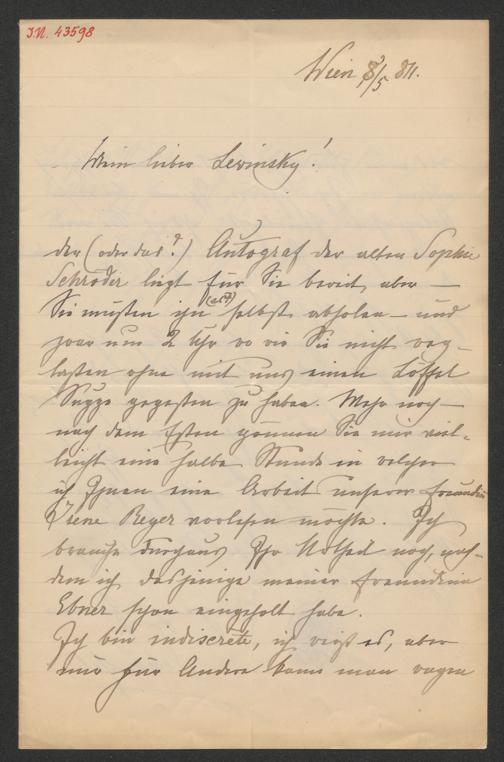 I.N. 43598
Wien 8/5 811.
Mein lieber Lewinsky!
der (oder das?) Autograf der alten Sophie
Schröder liegt für Sie bereit, aber —
Sie müssten ihn (es?) selbst abholen — und
zwar um 2 Uhr wo wir Sie nicht weg-
lassen ohne mit uns einen Löffel
Suppe gegessen zu haben. Mehr noch —
nach dem Essen gönnen Sie mir viel-
leicht eine halbe Stunde in welcher
ich Ihnen eine Arbeit unserer Freundin
Irene Beyer vorlesen möchte. Ich
brauche durchaus Ihr Urtheil noch, nach-
dem ich dasjenige meiner Freundin
Ebner schon eingeholt habe.
Ich bin indiscrete, ich weiß es, aber
nur für Andere kann man wagen